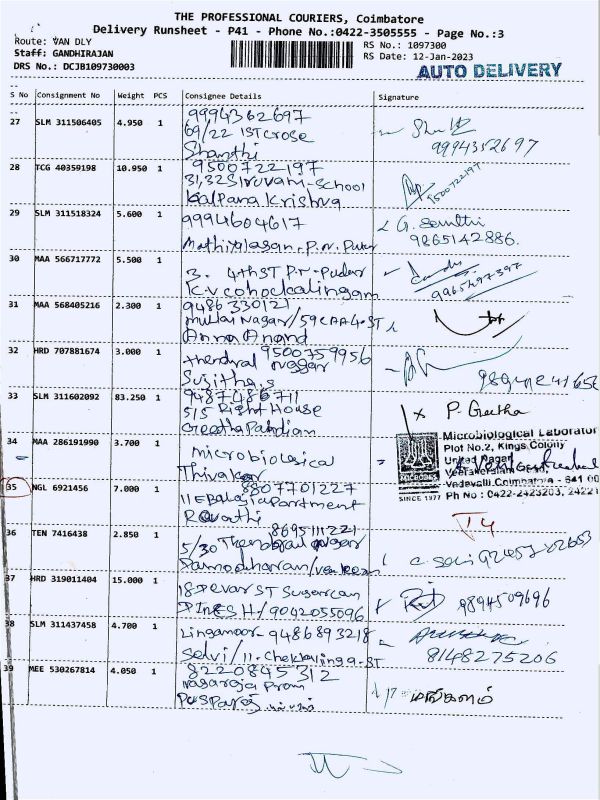 THE PROFESSIONAL COURIERS, Coimbatore
Delivery Runsheet - P41 - Phone No.:0422-3505555 - Page No.:3
Route: VAN DLY
RS No.: 1097300
Staff: GANDHIRAJAN
RS Date: 12-Jan-2023
DRS No.: DCJB109730003
AUTO DELIVERY
S No Consignment No Weight PCS Consignee Details Signature
27 SLM 311506405 4.950 1 9994362697
69/22 1ST Crose
Shanthi
9994352697
28 TCG 40359198 10.950 1 9500722197
31,32 Siruvani-School
Kalpana Krishna
9500722197
29 SLM 311518324 5.600 1 9994604617
Mathiyalagan. P.N. Pudur
9865142886.
30 MAA 566717772 5.500 1
3. 4th ST P.N-Pudur
K.V Chockalingam
9965497397
31 MAA 568405216 2.300 1 9486330121
Mullai Nagar/59CAA4-ST
Anna Anand
32 HRD 707881674 3.000 1 9500759956
Thendral Nagar
Sujitha.s
33 SLM 311602092 83.250 1 9487486711
515 Right House
Geetha Pandian
P. Geetha
34 MAA 286191990 3.700 1 Microbiological
Thivakar
Microbiological Laborator
Plot No.2, Kings Colony
United Nagar,
Veerakeralam Road,
Vadavalli, Coimbatore - 641 00
Ph No : 0422-2423203, 24221
SINCE 1977
35 NGL 6921456 7.000 1 8807701227
11E Balaji Apartment
Revathi
36 TEN 7416438 2.850 1 8695111221
5/30 Thendral Nagar
Damodharan/
37 HRD 319011404 15.000 1
18 Devar ST Sugarcan
DINESH/9042055096
9894509696
38 SLM 311437458 4.700 1 Linganoor 9486893218
Selvi/11-
8148275206
39 MEE 530267814 4.050 1 8220845312
Nagaraja Pram
Pusparaj
மங்களம்